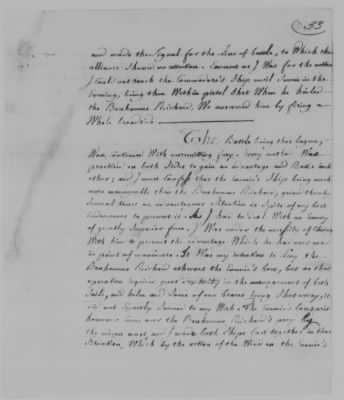 33
and made the Signal for the Line of battle, to Which the
alliance Shewed no attention. Earnest as I Was for the action
I Could not reach the Commodore's Ship until Seven in the
evening, being then Within pistol Shot When he hailed
the Bonhomme Richard, We answered him by firing a
Whole broadside.
The Battle being thus begun,
Was Continued With unremitting fury. Every method Was
practised on both Sides to gain an advantage and Rake each
other; and I must Confess that the Enemie's Ship being much
more manageable than the Bonhomme Richard, gained thereby
Several times an advantageous Situation in Spite of my best
Endeavours to prevent it. As I had to deal With an Enemy
of greatly Superior force, I Was under the necessity of Closing
With him to prevent the advantage Which he had over me
in point of manœuvre. It Was my intention to lay the
Bonhomme Richard athwart the Enemie's bow, but as that
operation required great dexterity in the management of both
Sails and helm and Some of our braces being Shot away, it
did not Exactly Succeed to my Wish. The Enemie's bowsprit
however Came over the Bonhomme Richard's poop by
the mizen mast, and I made both Ships fast together in that
Situation, Which by the action of the Wind on the Enemie's